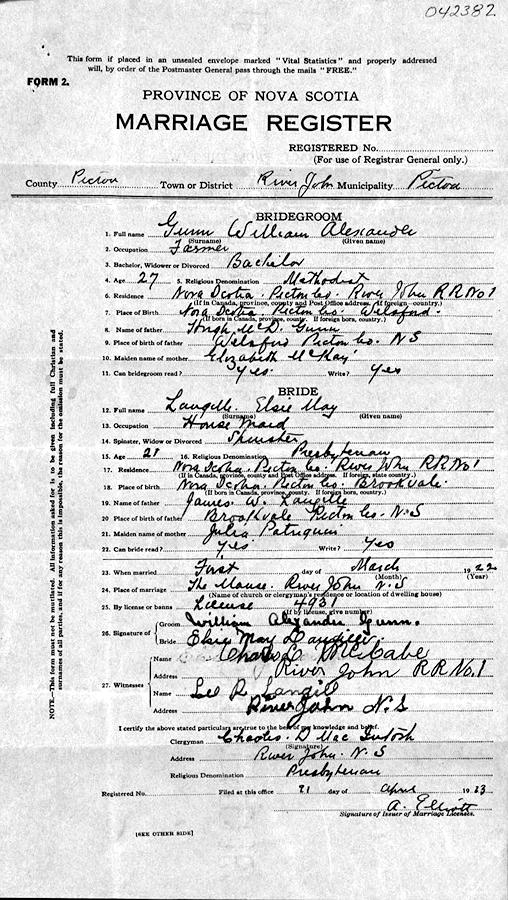 042382
This form if placed in an unsealed envelope marked "Vital Statistics" and properly addressed
will, by order of the Postmaster General pass through the mails "FREE."
FORM 2.
PROVINCE OF NOVA SCOTIA
MARRIAGE REGISTER
REGISTERED No.
(For use of Registrar General only.)
County Pictou Town or District River John Municipality Pictou
BRIDEGROOM
1. Full name Gunn William Alexander
(Surname) (Given name)
2. Occupation Farmer
3. Bachelor, Widower or Divorced Bachelor
4. Age 27 5. Religious Denomination Methodist
6. Residence Nova Scotia. Pictou Co. River John R R No 1
(If in Canada, province, county and Post Office address. If foreign country.)
7. Place of Birth Nova Scotia. Pictou Co. Welsford.
(If born in Canada, province, county. If foreign born, country.)
8. Name of father Hugh McD. Gunn
9. Place of birth of father Welsford Pictou Co. N S
10. Maiden name of mother Elizabeth McKay
11. Can bridegroom read? Yes. Write? Yes
BRIDE
12. Full name Langille. Elsie May
(Surname) (Given name)
13. Occupation House Maid
14. Spinster, Widow or Divorced Spinster
15. Age 21 16. Religious Denomination Presbyterian
17. Residence Nova Scotia. Pictou Co. River John R R No 1
(If in Canada, province, county and Post Office address. If foreign, state country.)
18. Place of Birth Nova Scotia. Pictou Co. Brookvale.
(If born in Canada, province, county. If foreign born, country.)
19. Name of father James W. Langille
20. Place of birth of father Brookvale Pictou Co. N. S
21. Maiden name of mother Julia Patriquin
22. Can bride read? Yes Write? Yes
23. When married First day of March 1922
(Month) (Year)
24. Place of marriage The Manse. River John N. S
(Name of church or clergyman's residence or location of dwelling house)
25. By license or banns License 4931
(If by license, give number)
26. Signature of Groom William Alexander Gunn.
Bride Elsie May Langille.
27. Witnesses Name Charles L McCabe
Address River John R R No. 1
Name Lee R Langill
Address River John N. S
I certify the above stated particulars are true to the best of my knowledge and belief.
Clergyman Charles. D Mac Intosh
(Signature)
Address River John. N. S
Religious Denomination Presbyterian
Registered No. Filed at this office 21 day of April 1923
A. Elliott
Signature of Issuer of Marriage Licenses.
[SEE OTHER SIDE]
NOTE.—This form must not be mutilated. All information asked for is to be given including full Christian and
surnames of all parties, and if for any reason this is impossible, the reason for the omission must be stated.